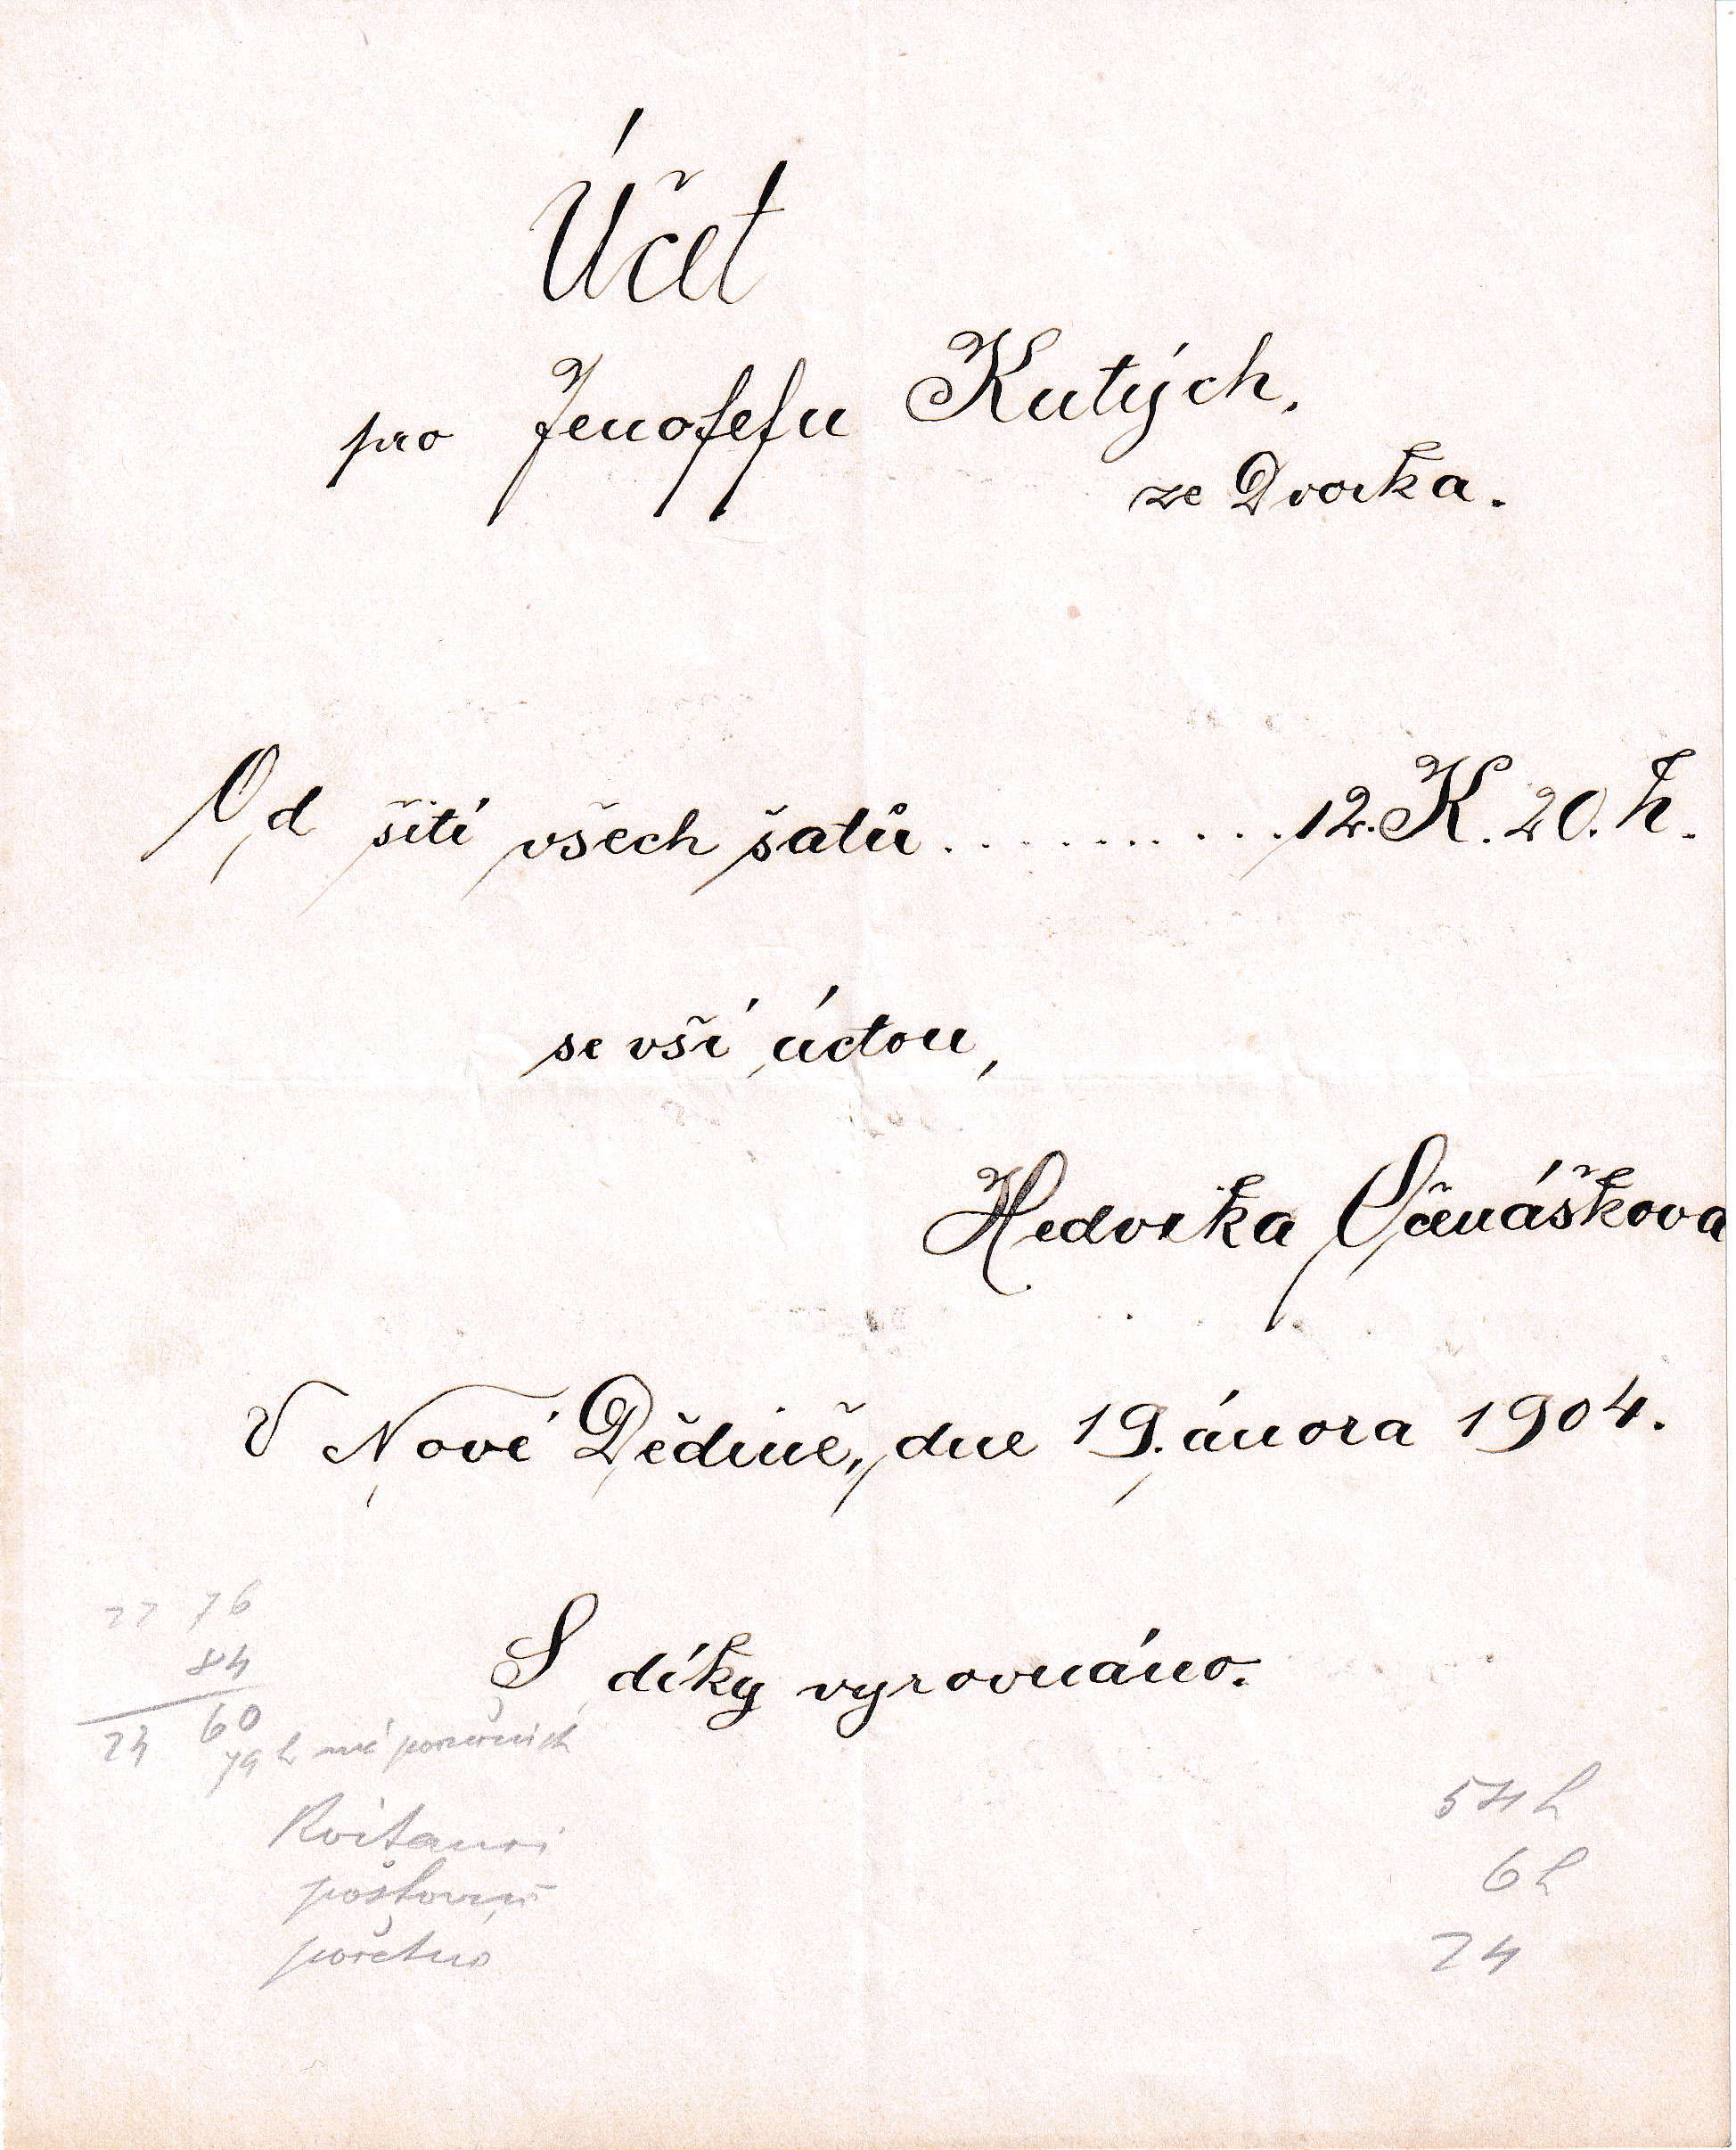 Účet
pro Jenofefu Kutých,
ze Dvorka.
Od šití všech šatů .......... 12. K. 20. h.
se vší úctou,
Hedvika
V Nové Dědině, dne 19. února 1904.
S díky vyrovnáno.
22 76
84
24 60
h
Kvitanci
poštovní
54 h
6 h
24